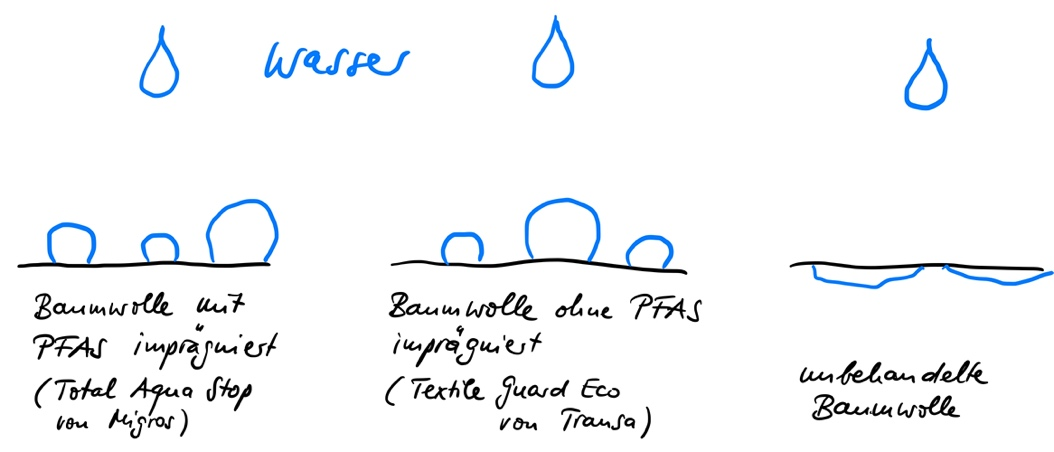 Wasser
Baumwolle mit
PFAS imprägniert
(Total Aqua Stop
von Migros)
Baumwolle ohne PFAS
imprägniert
(Textile Guard Eco
von Transa)
unbehandelte
Baumwolle